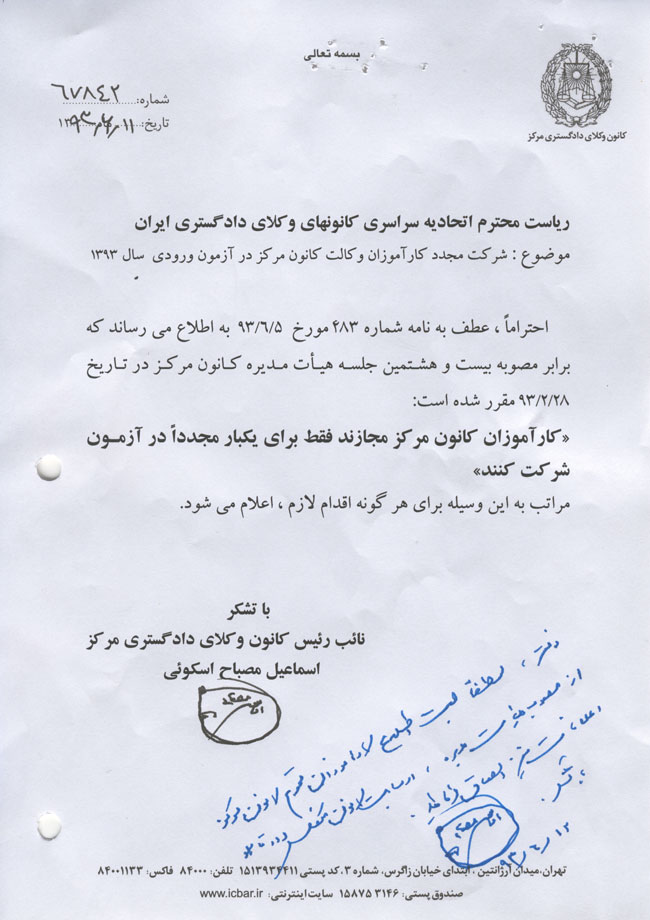 بسمه تعالی
کانون وکلای دادگستری مرکز
شماره: ۶۷۸۴۲
تاریخ:
ریاست محترم اتحادیه سراسری کانونهای وکلای دادگستری ایران
موضوع : شرکت مجدد کارآموزان وکالت کانون مرکز در آزمون ورودی سال ۱۳۹۳
احتراماً ، عطف به نامه شماره ۴۸۳ مورخ ۹۳/۶/۵ به اطلاع می رساند که
برابر مصوبه بیست و هشتمین جلسه هیأت مدیره کانون مرکز در تاریخ
۹۳/۲/۲۸ مقرر شده است:
«کارآموزان کانون مرکز مجازند فقط برای یکبار مجدداً در آزمون
شرکت کنند»
مراتب به این وسیله برای هر گونه اقدام لازم ، اعلام می شود.
با تشکر
نائب رئیس کانون وکلای دادگستری مرکز
اسماعیل مصباح اسکوئی
دفتر ، لطفاً جهت اطلاع کارآموزان محترم کانون مرکز
از مصوب هیأت مدیره ،
تهران،میدان آرژانتین ، ابتدای خیابان زاگرس، شماره ۳ .کد پستی ۱۵۱۳۹۳۴۴۱۱ تلفن: ۸۴۰۰۰ فاکس: ۸۴۰۰۱۱۳۳
صندوق پستی: ۳۱۴۶ ۱۵۸۷۵ سایت اینترنتی: www.icbar.ir